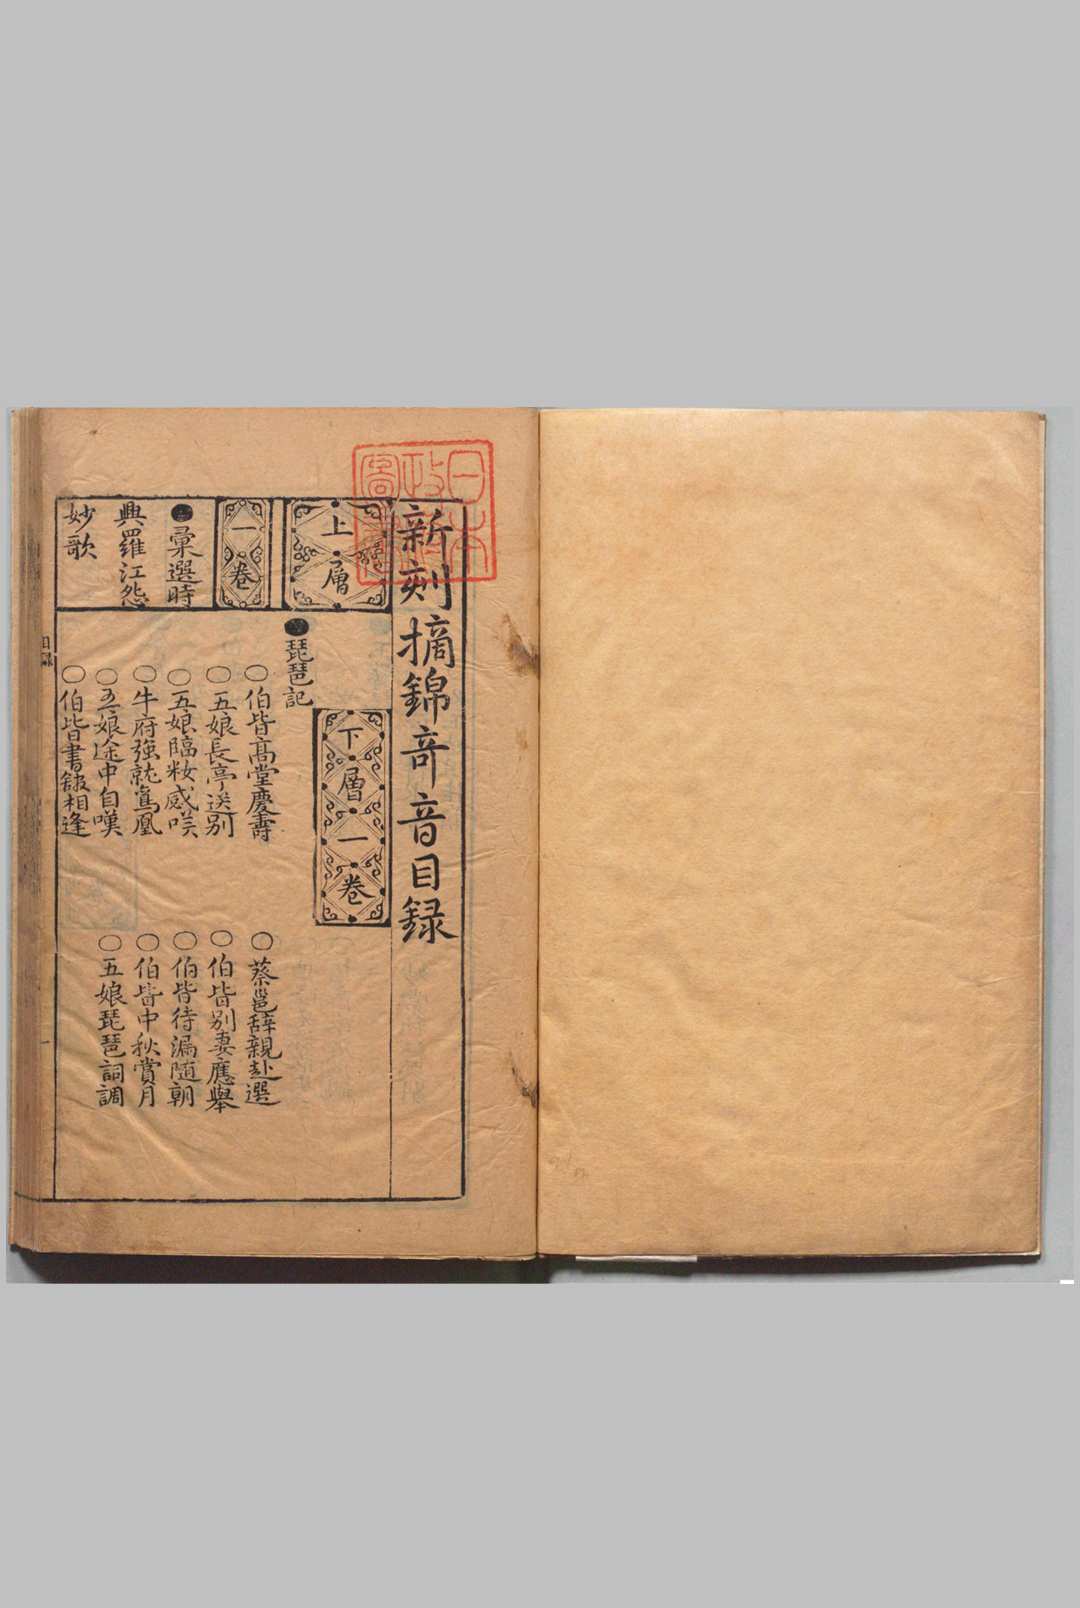 新刻摘錦奇音目録
上層
一卷
●彙選時
興羅江怨
妙歌
下層一卷
●琵琶記
○伯皆高堂慶壽
○蔡邕辞親赴選
○五娘長亭送别
○伯皆别妻應舉
○五娘臨粧感嘆
○伯皆待漏随朝
○牛府強就鸞凰
○伯皆中秋賞月
○五娘途中自嘆
○五娘琵琶詞調
○伯皆書舘相逢
目録
一
日本
政府
圖書